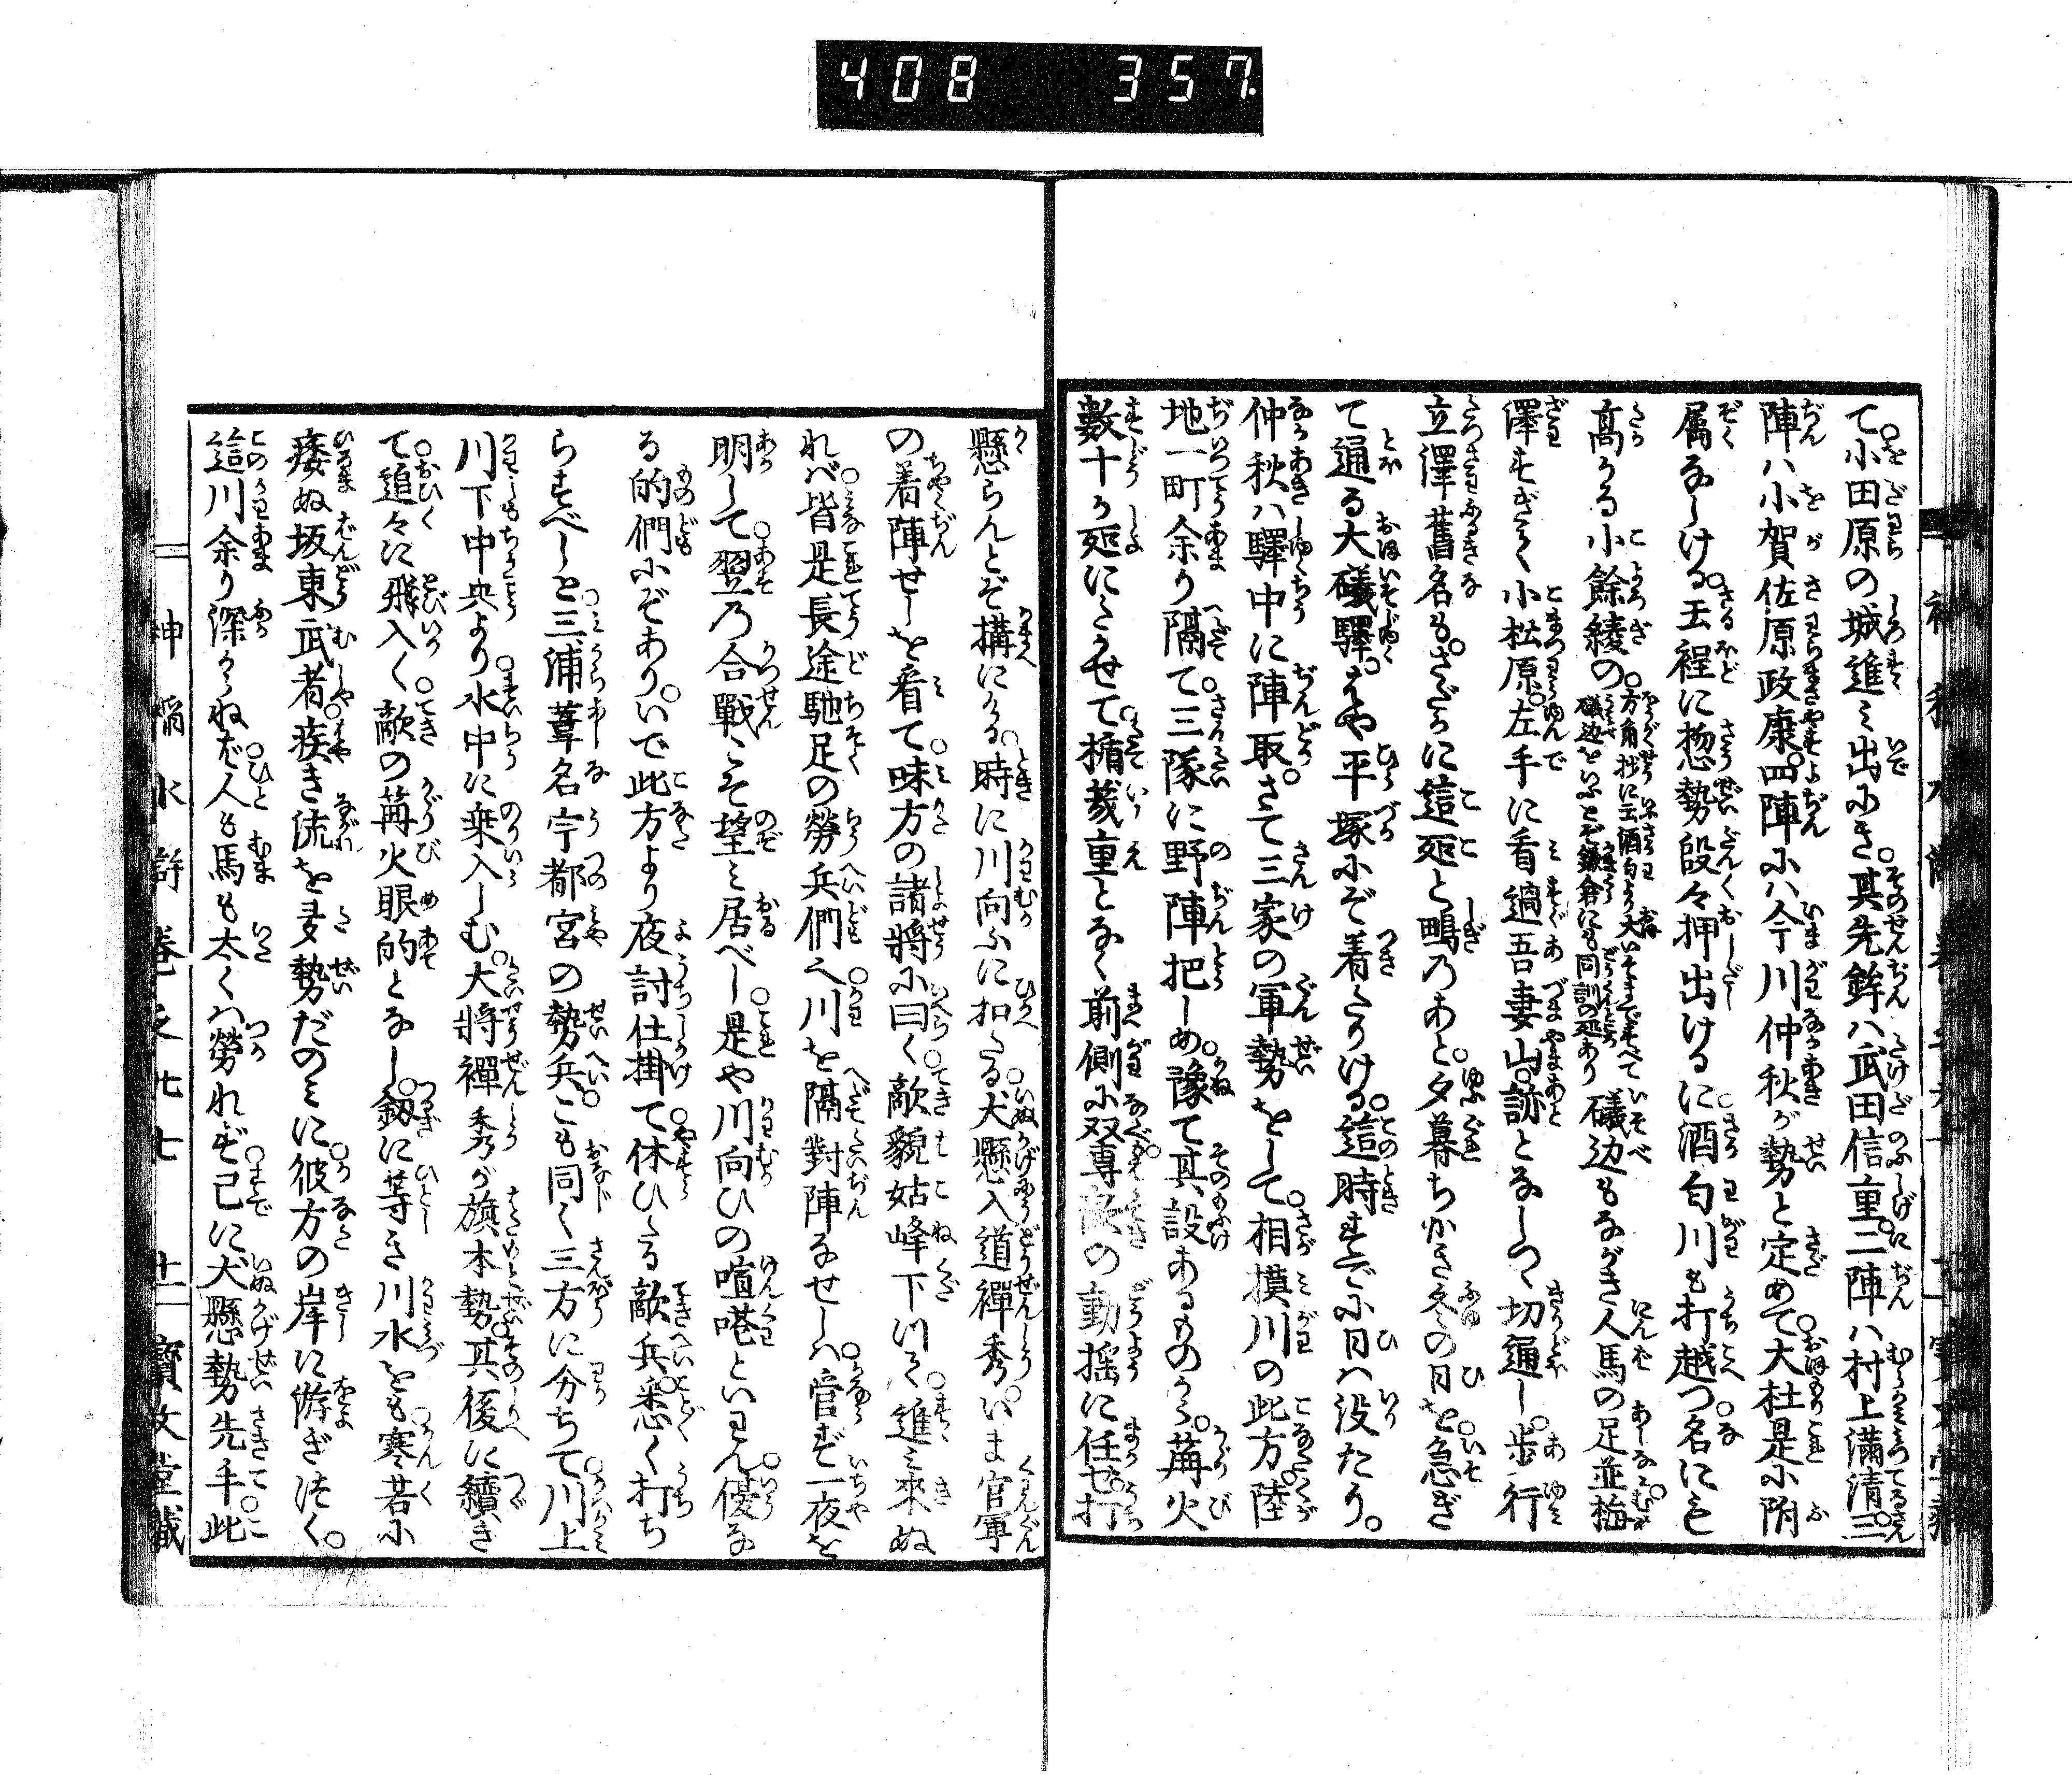 408 357
て小田原の城進ミ出にき。其先鋒ハ武田信重。二陣ハ村上満清。三
陣ハ小賀佐原政康。四陣にハ今川仲秋が勢と定めて。大杜是に附
属なしける。さる程に惣勢段々押出けるに酒匂川も打越つ。名にも
高かる小餘綾の。方角抄に云酒匂より大いそまですべて
礒辺をいふとぞ鎌倉にも同訓の処あり
礒辺もながき人馬の足並。梅
澤すぎて小松原。左手に看過吾妻山。跡となしつゝ切通し。歩行
立澤舊名も。さだかに這処と鴫乃あと。夕暮ちかき冬の日を。急ぎ
て通る大礒驛。はや平塚にぞ着たりける。這時すでに日ハ没たり。
仲秋ハ驛中に陣取。さて三家の軍勢をして。相摸川の此方陸
地一町余り隔て。三隊に野陣把しめ。豫て其設あるものから。篝火
數十ヶ処にたかせて。楯幾重となく前側に双尃。敵の動揺に任せ打
懸らんとぞ搆にける。時に川向ふに扣たる。犬懸入道禪秀。いま官軍
の着陣せしを看て。味方の諸將に曰く。敵貌姑峰下りて。進ミ來ぬ
れバ。皆是長途馳足の勞兵們。川を隔對陣なせしハ。管ず一夜を
明して。翌乃合戰こそ望ミ居べし。是や川向ひの喧嘩といはん。優な
る的們にぞあり。いで此方より夜討仕掛て。休ひたる敵兵。悉く打ち
らすべしと。三浦葦名宇都宮の勢兵。こも同く三方に分ちて。川上
川下中央より。水中に乗入しむ。大將禪秀が旗本勢。其後に續き
て。追々に飛入く。敵の篝火眼的となし。釼に等き川水をも。寒苦に
痿ぬ坂東武者。疾き流を多勢だのミに。彼方の岸に游ぎ渡く。
這川余り深からねど。人も馬も太くハ勞れず。已に犬懸勢先手。此
神稲水滸傳 巻之廿七 十一 寳文堂藏